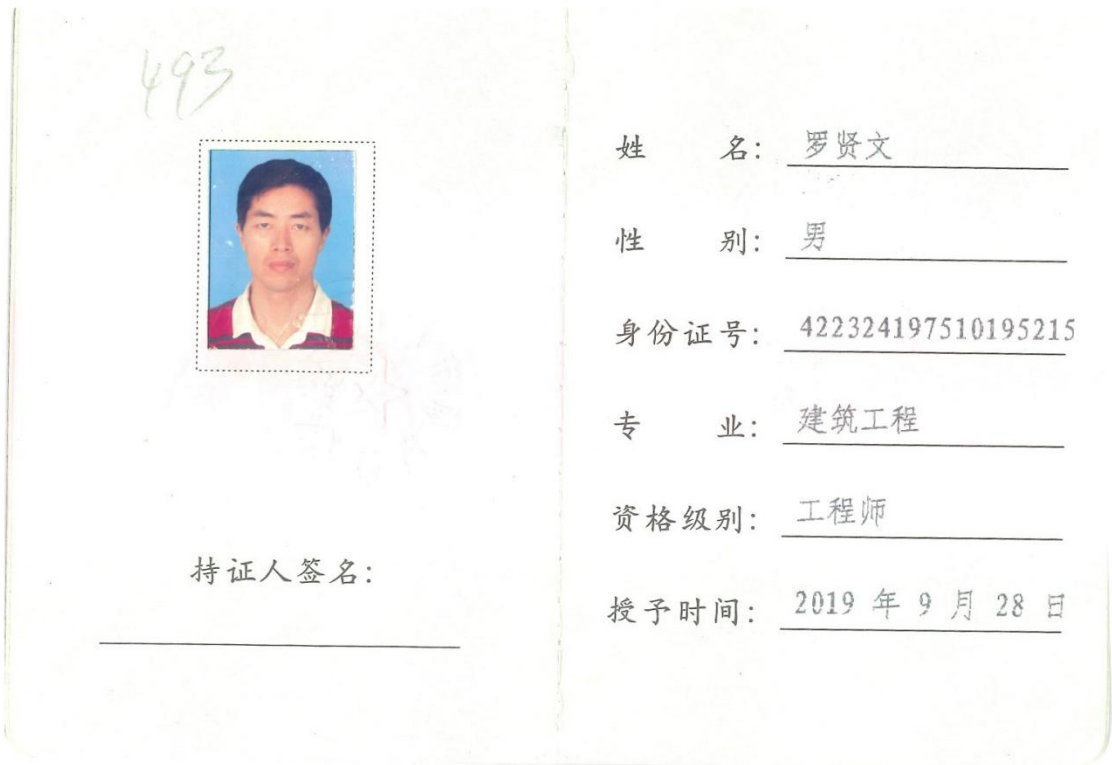 493
持证人签名：
姓 名：罗贤文
性 别：男
身份证号：422324197510195215
专 业：建筑工程
资格级别：工程师
授予时间：2019 年 9 月 28 日